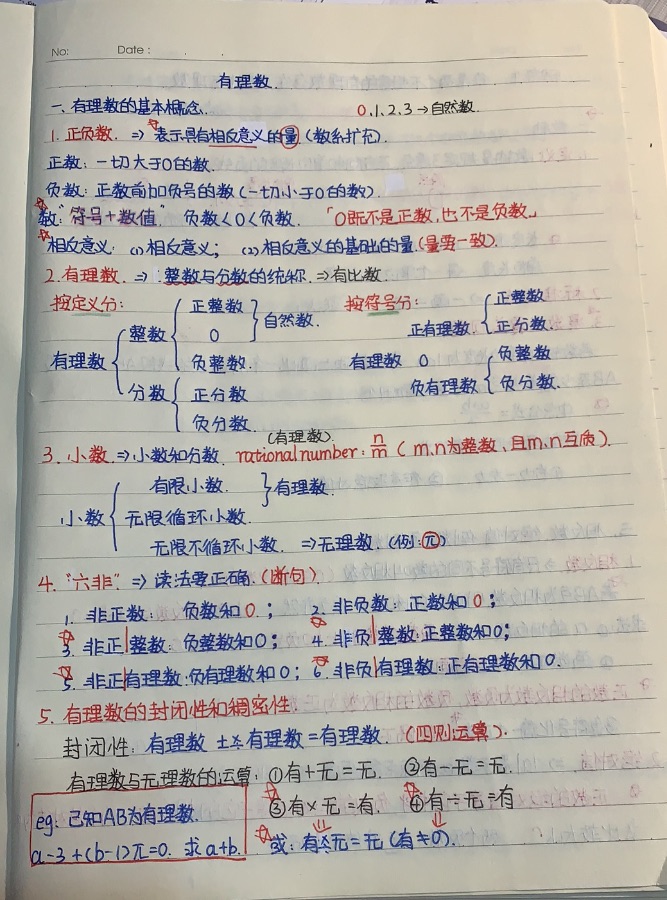 No: Date :
有理数.
一、有理数的基本概念. 0,1,2,3→自然数.
1. 正负数. ⇒ ☆表示具有相反意义的量(数系扩充).
正数: 一切大于0的数.
负数: 正数前加负号的数(一切小于0的数).
☆数:"符号+数值" 负数<0<负数. 「0既不是正数,也不是负数」
☆相反意义: (1) 相反意义; (2) 相反意义的基础的量.(量要一致).
2. 有理数. ⇒ 整数与分数的统称. ⇒有比数.
按定义分: 按符号分:
正整数 正整数
整数 0 自然数. 正有理数 正分数.
有理数 负整数. 有理数 0 负整数
分数 正分数 负有理数 负分数.
负分数.
(有理数).
3. 小数. ⇒小数和分数. rational number: n/m ( m,n为整数, 且m,n互质).
有限小数. 有理数.
小数 无限循环小数.
无限不循环小数. ⇒无理数. (例: π)
4. "六非" ⇒ 读法要正确. (断句).
1. 非正数: 负数和0; 2. 非负数: 正数和0;
☆3. 非正|整数: 负整数和0; ☆4. 非负|整数: 正整数和0;
☆5. 非正|有理数: 负有理数和0; ☆6. 非负|有理数: 正有理数和0.
5. 有理数的封闭性和稠密性:
封闭性: 有理数 ±×÷ 有理数=有理数. (四则运算).
有理数与无理数的运算: ①有+无=无. ②有-无=无.
☆③有×无=有. ☆④有÷无=有
eg: 已知AB为有理数.
a-3+(b-1)π=0. 求a+b. ☆或: 有×÷无=无 (有≠0).